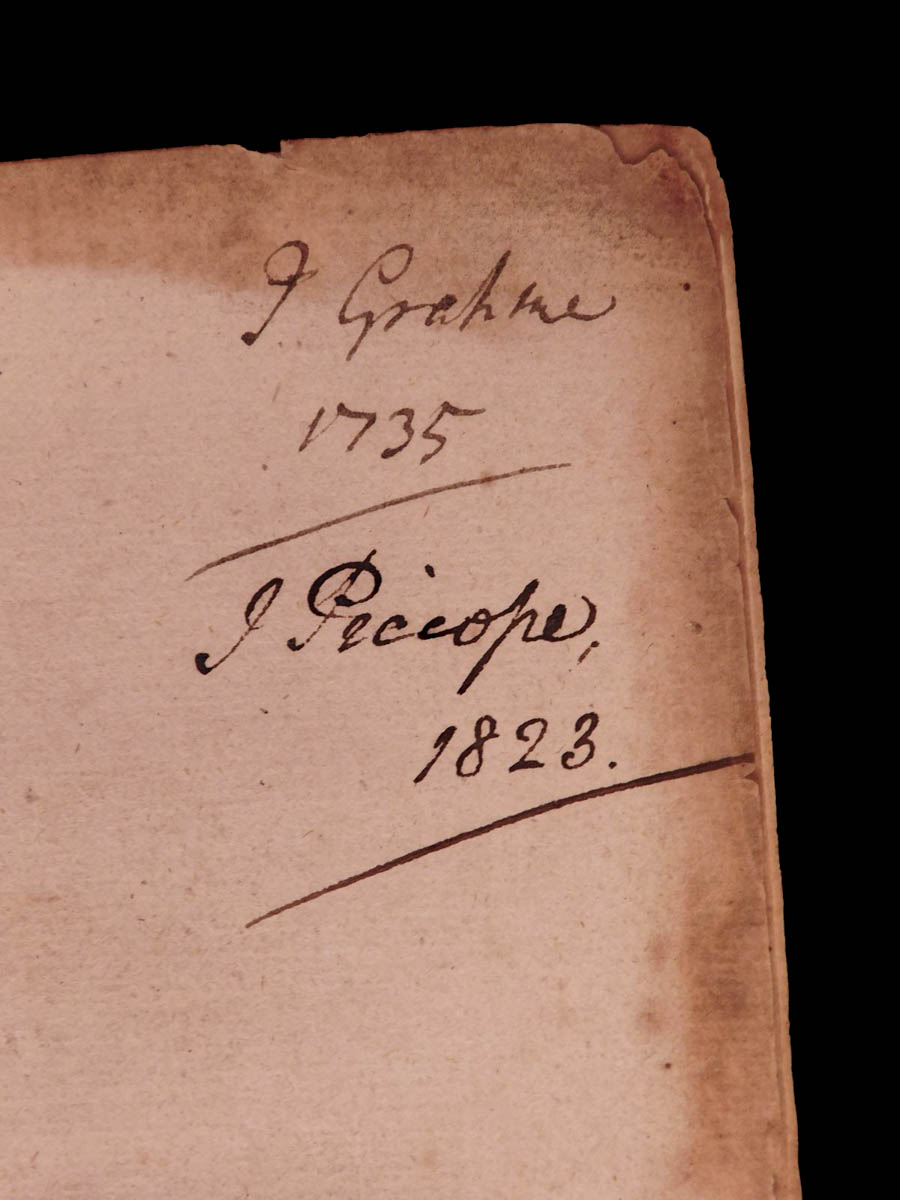 J Grahme
1735
J Piccope,
1823.